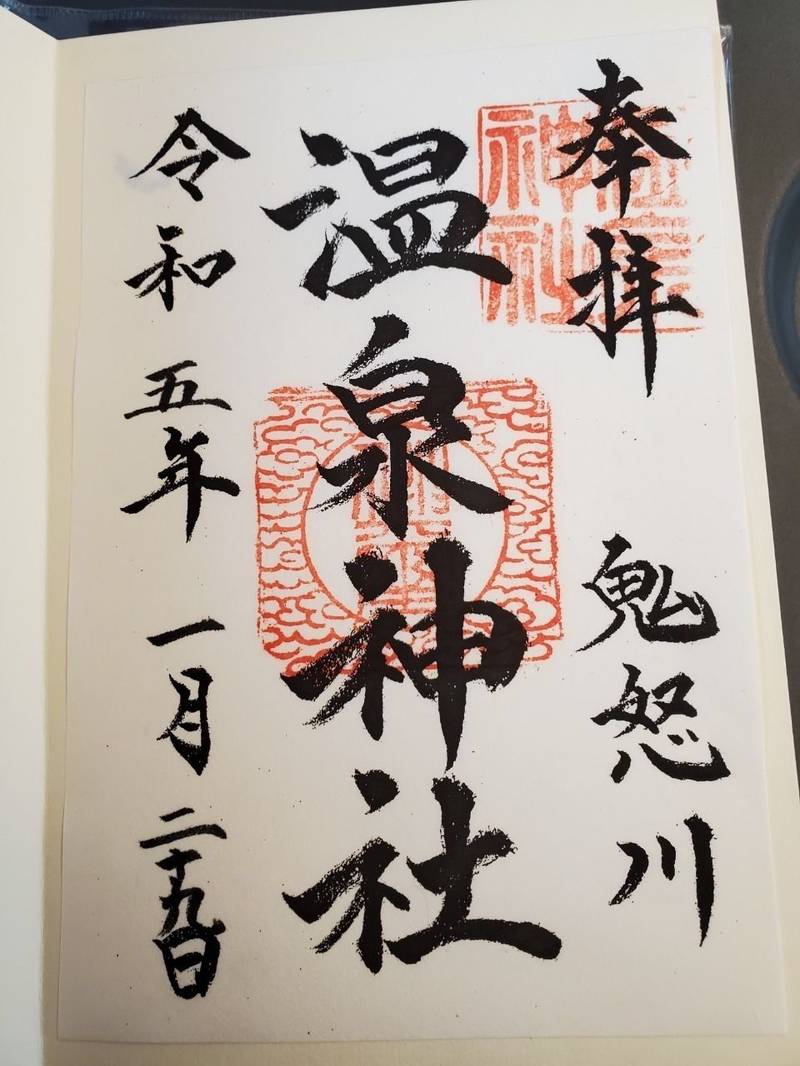 奉拝 鬼怒川
温泉神社
令和五年 一月 二十九日